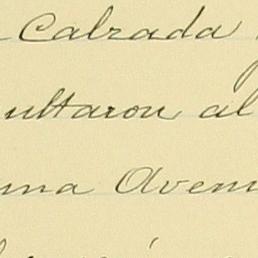 Calzada
ultaron al
una Aven